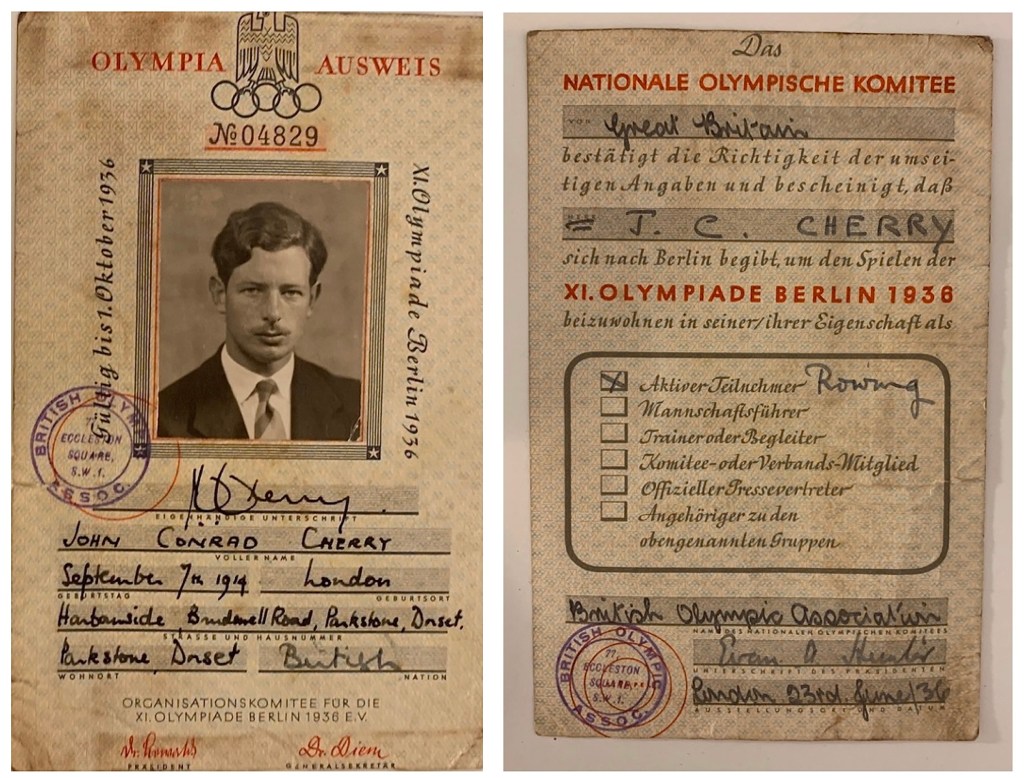 OLYMPIA AUSWEIS
№04829
Gültig bis 1. Oktober 1936
XI. Olympiade Berlin 1936
BRITISH OLYMPIC ASSOC.
77, ECCLESTON SQUARE, S.W.1.
EIGENHÄNDIGE UNTERSCHRIFT
JOHN CONRAD CHERRY
VOLLER NAME
September 7th 1914 London
GEBURTSTAG GEBURTSORT
Harbourside, Brudenell Road, Parkstone, Dorset,
STRASSE UND HAUSNUMMER
Parkstone, Dorset British
WOHNORT NATION
ORGANISATIONSKOMITEE FÜR DIE
XI. OLYMPIADE BERLIN 1936 E.V.
Dr. Dr. Diem
PRÄSIDENT GENERALSEKRETÄR
Das
NATIONALE OLYMPISCHE KOMITEE
VON Great Britain
bestätigt die Richtigkeit der umsei-
tigen Angaben und bescheinigt, daß
J. C. CHERRY
sich nach Berlin begibt, um den Spielen der
XI. OLYMPIADE BERLIN 1936
beizuwohnen in seiner/ihrer Eigenschaft als
X Aktiver Teilnehmer Rowing
Mannschaftsführer
Trainer oder Begleiter
Komitee- oder Verbands-Mitglied
Offizieller Pressevertreter
Angehöriger zu den
obengenannten Gruppen
British Olympic Association
NAME DES NATIONALEN OLYMPISCHEN KOMITEES
Evan A Hunter
UNTERSCHRIFT DES PRÄSIDENTEN
London 23rd June/36
AUSSTELLUNGSORT UND DATUM
BRITISH OLYMPIC ASSOC.
77, ECCLESTON SQUARE, S.W.1.